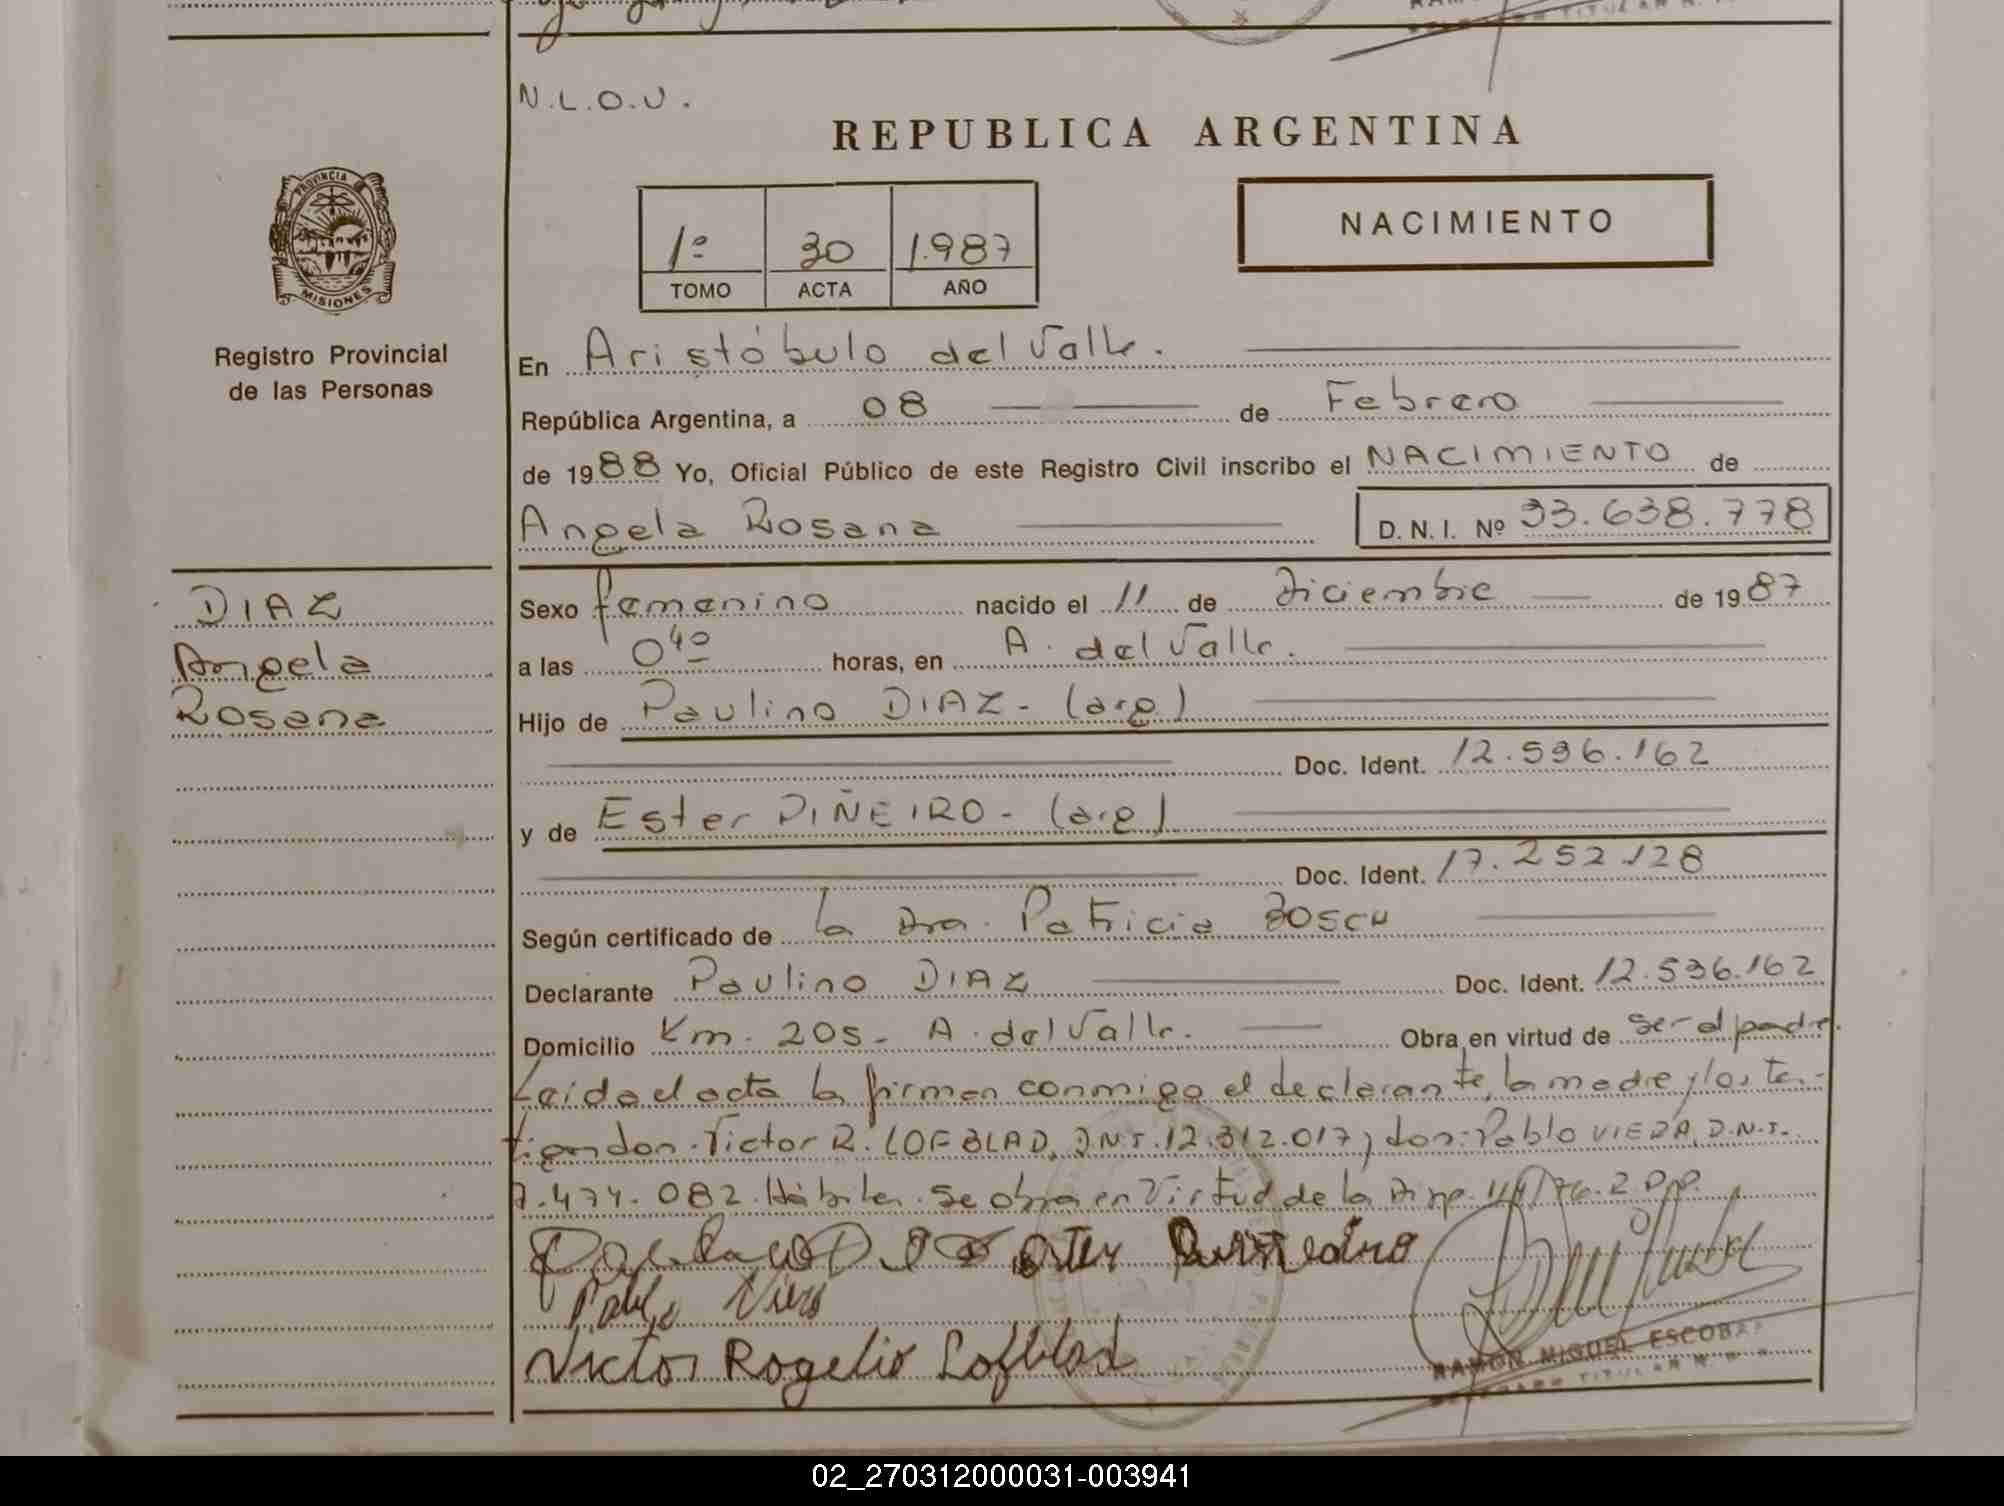 N.L.O.U.
REPUBLICA ARGENTINA
PROVINCIA DE
MISIONES
Registro Provincial
de las Personas
NACIMIENTO
1º 30 1.987
TOMO ACTA AÑO
En Aristóbulo del Valle.
República Argentina, a 08 de Febrero
de 1988 Yo, Oficial Público de este Registro Civil inscribo el NACIMIENTO de
Angela Rosana D.N.I. Nº 33.638.778
DIAZ
Angela
Rosana
Sexo femenino nacido el 11 de Diciembre de 1987
a las 0⁴⁰ horas, en A. del Valle.
Hijo de Paulino DIAZ - (arg)
Doc. Ident. 12.596.162
y de Ester PIÑEIRO - (arg)
Doc. Ident. 17.252.128
Según certificado de la Dra. Patricia BOSCH
Declarante Paulino DIAZ Doc. Ident. 12.596.162
Domicilio Km. 205 - A. del Valle. Obra en virtud de ser el padre.
Leida el acta la firman conmigo el declarante, la madre y los tes-
tigos don: Victor R. LOFBLAD, D.N.I. 12.312.017 y don: Pablo VIERA, D.N.I.
7.474.082. Hábiles. Se obra en Virtud de la Disp.
Pablo Viera
Victor Rogelio Lofblad
RAMON MIGUEL ESCOBAR
02_270312000031-003941